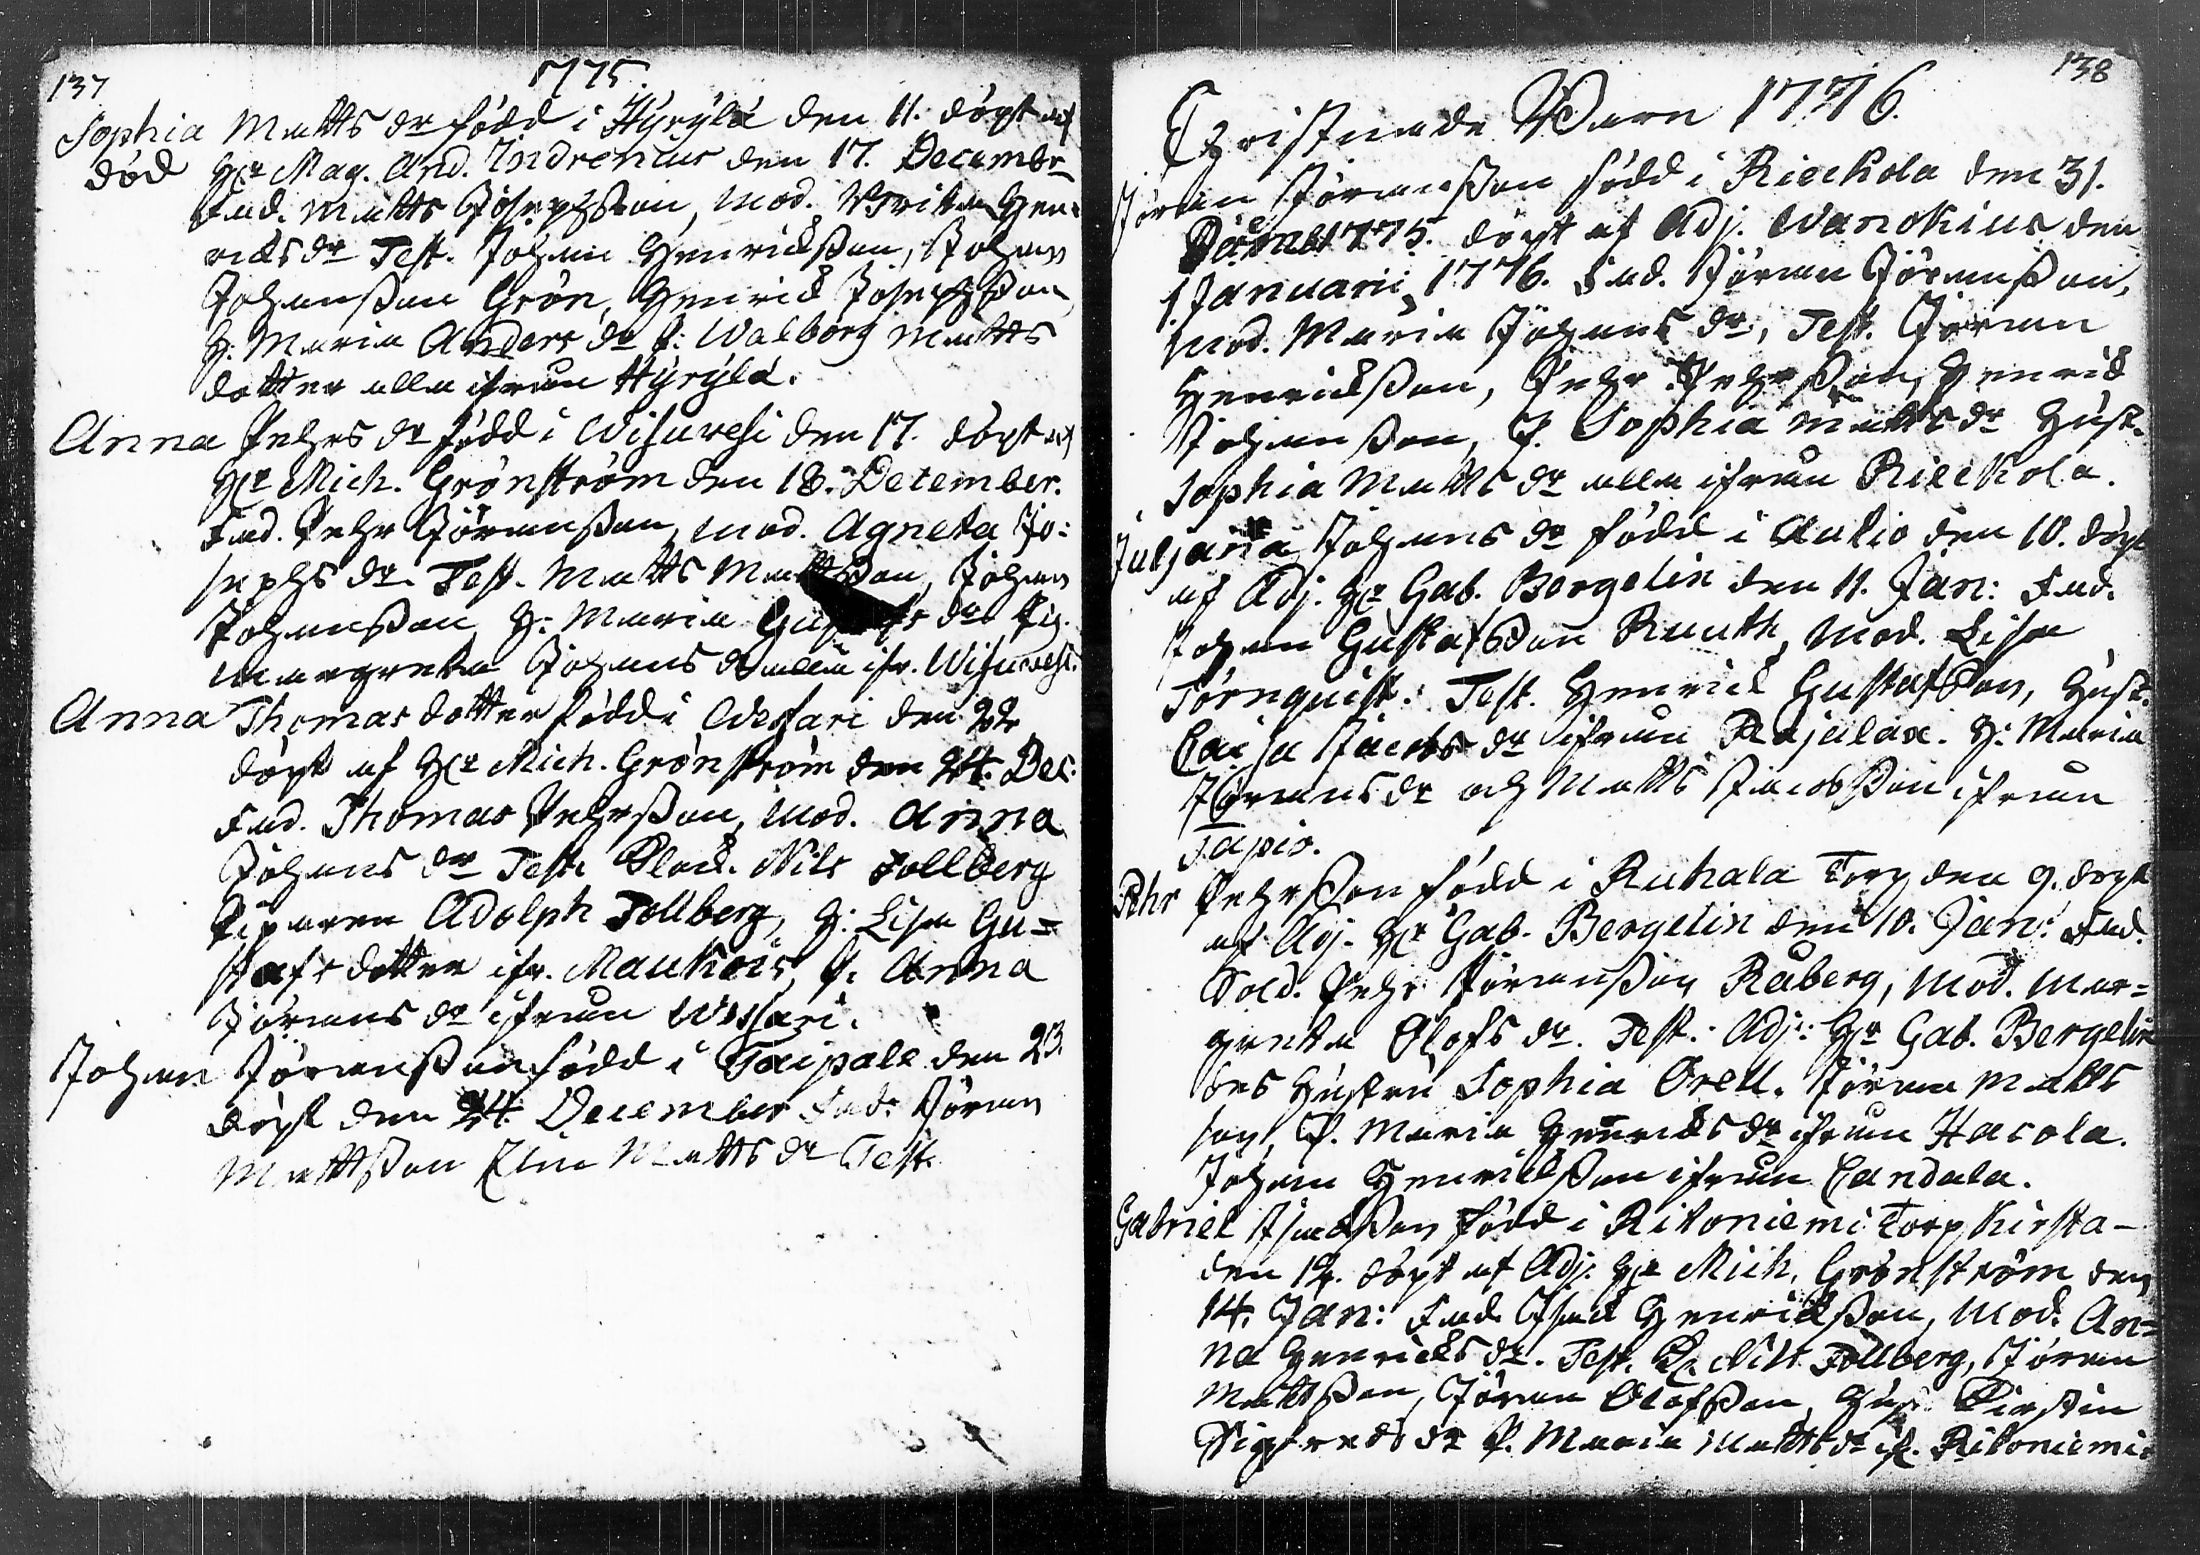 137
1775.
Sophia Matts dr född i Hyrylä den 11. döpt af
död Hr Mag. And. Indrenius den 17. Decembr
Fad. Matts Josephsson, Mod. Brita Hen-
ricks dr Test. Johan Henricksson, Johan
Johansson Grön, Henrick Josephsson
H: Maria Anders dr P: Walborg Matts
dotter alla ifrån Hyrylä.
Anna Pehrs dr född i Wisuvesi den 17. döpt af
Hr Mich. Grönström den 18. December.
Fad. Pehr Jöransson, Mod. Agneta Jo:
sephs dr. Test. Matts Mattsson, Johan
Johansson, H: Maria Gustafs dr Pig.
Margreta Johans dr alla ifr. Wisuvesi.
Anna Thomas dotter född i Wessari den 22
döpt af Hr Mich. Grönström den 24. Dec:
Fad. Thomas Pehrsson, Mod. Anna
Johans dr Test. Klock. Nils Tollberg
Piparen Adolph Tollberg, H: Lisa Gu=
stafs dotter ifr. Maukois, P. Anna
Jörans dr ifrån Wessari.
Johan Jöransson född i Taipale den 23.
döpt den 24. December Fad: Jöran
Mattsson Elin Matts dr Test.
138
Christnade Barn 1776.
Jöran Jöransson född i Rieckola den 31.
Decemb 1775. döpt af Adj. Wanokius den
1 Januarii 1776. Fad. Jöran Jöransson,
Mod. Maria Johans dr, Test. Jöran
Henricksson, Pehr Pehrsson, Henrick
Johansson, P. Sophia Matts dr Hust.
Sophia Matts dr alla ifrån Rieckola.
Juljana Johans dr född i Aukio den 10. döpt
af Adj. Hr Gab. Bergelin den 11. Jan: Fad.
Johan Gustafsson Ruuth, Mod. Lisa
Törnquist: Test. Henrick Gustafsson, Hust.
Caisa Jacobs dr ifrån Rajalax. H: Maria
Jörans dr och Matts Jacobsson ifrån
Tapio.
Pehr Pehrsson född i Ruhala Torp den 9. döpt
af Adj. Hr Gab. Bergelin den 10. Jan: Fad.
Sold. Pehr Jöransson Råberg, Mod. Mar=
greta Olofs dr. Test.: Adj: Hr Gab. Bergelin
des Hustru Sophia Orell. Jöran Matts
son, P. Maria Henricks dr ifrån Hacola.
Johan Henricksson ifrån Candala.
Gabriel Isacsson född i Ritoniemi Torp Kirsta-
den 12. döpt af Adj. Hr Mich. Grönström den
14. Jan: Fad. Isack Henricksson, Mod. An=
na Henricks dr. Test. Kl. Nils Tollberg, Jöran
Mattsson, Jöran Olofsson, Hust. Kirstin
Sigfreds dr P. Maria Matts dr if. Ritoniemi.